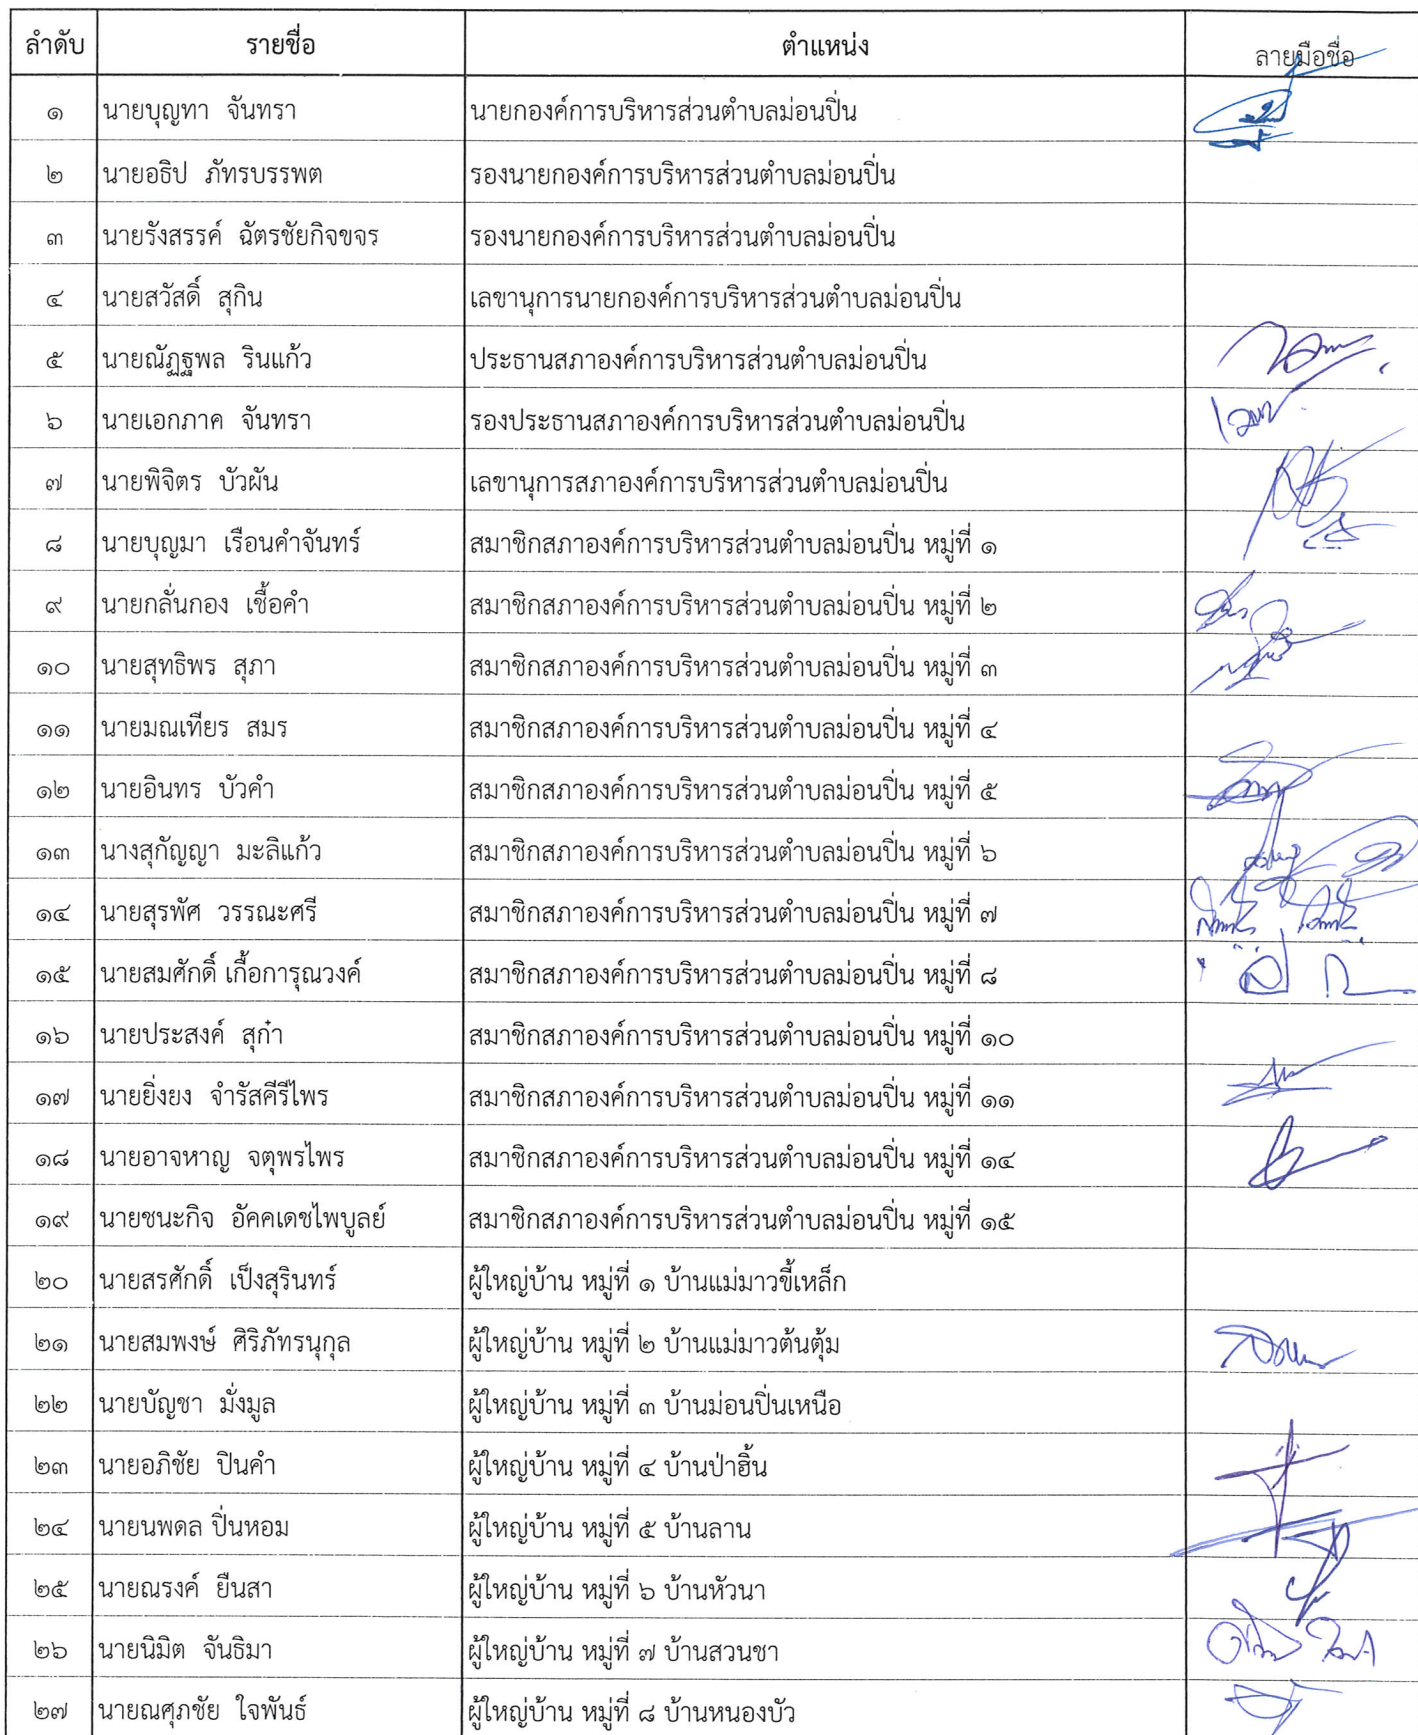 ลำดับ รายชื่อ ตำแหน่ง ลายมือชื่อ
๑ นายบุญทา จันทรา นายกองค์การบริหารส่วนตำบลม่อนปิ่น
๒ นายอธิป ภัทรบรรพต รองนายกองค์การบริหารส่วนตำบลม่อนปิ่น
๓ นายรังสรรค์ ฉัตรชัยกิจขจร รองนายกองค์การบริหารส่วนตำบลม่อนปิ่น
๔ นายสวัสดิ์ สุกิน เลขานุการนายกองค์การบริหารส่วนตำบลม่อนปิ่น
๕ นายณัฏฐพล รินแก้ว ประธานสภาองค์การบริหารส่วนตำบลม่อนปิ่น
๖ นายเอกภาค จันทรา รองประธานสภาองค์การบริหารส่วนตำบลม่อนปิ่น
๗ นายพิจิตร บัวผัน เลขานุการสภาองค์การบริหารส่วนตำบลม่อนปิ่น
๘ นายบุญมา เรือนคำจันทร์ สมาชิกสภาองค์การบริหารส่วนตำบลม่อนปิ่น หมู่ที่ ๑
๙ นายกลั่นกอง เชื้อคำ สมาชิกสภาองค์การบริหารส่วนตำบลม่อนปิ่น หมู่ที่ ๒
๑๐ นายสุทธิพร สุภา สมาชิกสภาองค์การบริหารส่วนตำบลม่อนปิ่น หมู่ที่ ๓
๑๑ นายมณเทียร สมร สมาชิกสภาองค์การบริหารส่วนตำบลม่อนปิ่น หมู่ที่ ๔
๑๒ นายอินทร บัวคำ สมาชิกสภาองค์การบริหารส่วนตำบลม่อนปิ่น หมู่ที่ ๕
๑๓ นางสุกัญญา มะลิแก้ว สมาชิกสภาองค์การบริหารส่วนตำบลม่อนปิ่น หมู่ที่ ๖
๑๔ นายสุรพัศ วรรณะศรี สมาชิกสภาองค์การบริหารส่วนตำบลม่อนปิ่น หมู่ที่ ๗
๑๕ นายสมศักดิ์ เกื้อการุณวงค์ สมาชิกสภาองค์การบริหารส่วนตำบลม่อนปิ่น หมู่ที่ ๘
๑๖ นายประสงค์ สุก๋า สมาชิกสภาองค์การบริหารส่วนตำบลม่อนปิ่น หมู่ที่ ๑๐
๑๗ นายยิ่งยง จำรัสคีรีไพร สมาชิกสภาองค์การบริหารส่วนตำบลม่อนปิ่น หมู่ที่ ๑๑
๑๘ นายอาจหาญ จตุพรไพร สมาชิกสภาองค์การบริหารส่วนตำบลม่อนปิ่น หมู่ที่ ๑๔
๑๙ นายชนะกิจ อัคคเดชไพบูลย์ สมาชิกสภาองค์การบริหารส่วนตำบลม่อนปิ่น หมู่ที่ ๑๕
๒๐ นายสรศักดิ์ เป็งสุรินทร์ ผู้ใหญ่บ้าน หมู่ที่ ๑ บ้านแม่มาวขี้เหล็ก
๒๑ นายสมพงษ์ ศิริภัทรนุกุล ผู้ใหญ่บ้าน หมู่ที่ ๒ บ้านแม่มาวต้นตุ้ม
๒๒ นายบัญชา มั่งมูล ผู้ใหญ่บ้าน หมู่ที่ ๓ บ้านม่อนปิ่นเหนือ
๒๓ นายอภิชัย ปินคำ ผู้ใหญ่บ้าน หมู่ที่ ๔ บ้านป่าฮิ้น
๒๔ นายนพดล ปิ่นหอม ผู้ใหญ่บ้าน หมู่ที่ ๕ บ้านลาน
๒๕ นายณรงค์ ยืนสา ผู้ใหญ่บ้าน หมู่ที่ ๖ บ้านหัวนา
๒๖ นายนิมิต จันธิมา ผู้ใหญ่บ้าน หมู่ที่ ๗ บ้านสวนชา
๒๗ นายณศุภชัย ใจพันธ์ ผู้ใหญ่บ้าน หมู่ที่ ๘ บ้านหนองบัว